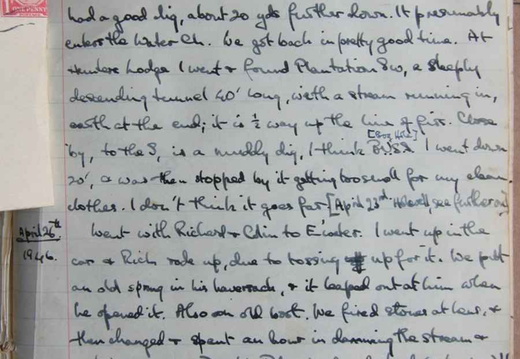 had a good dig, about 20 yds further down. It presumably
enters the Water Ch. We got back in pretty good time. At
Hunters Lodge I went & found Plantation Sw, a steeply
descending tunnel 40' long, with a stream running in,
earth at the end; it is ½ way up the line of firs. Close
by, to the S, is a muddy dig, I think I went down
20', & was then stopped by it getting too small for my clean
clothes. I don't think it goes far [April 23rd. see further on]
April 26th
1946.
Went with Richard & Colin to Exeter. I went up in the
car & Rich rode up, due to tossing up for it. We put
an old spring in his haversack, & it leaped out at him when
he opened it. Also an old boot. We fired stones at &
then changed & spent an hour in damming the stream &